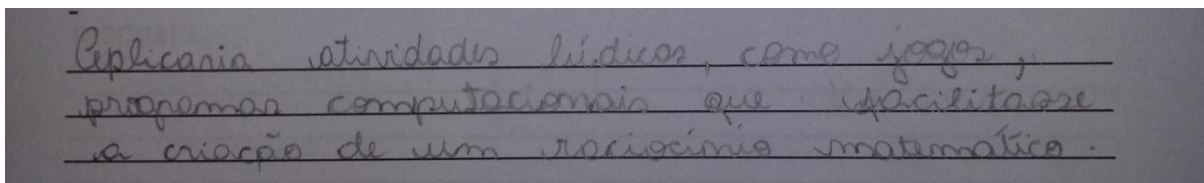 Aplicaria atividades lúdicas, como jogos,
programas computacionais que facilitasse
a criação de um raciocínio matemático.